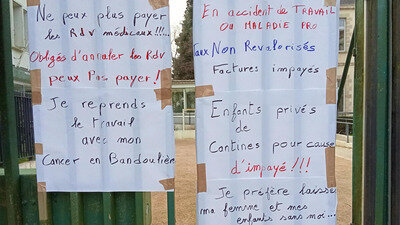 Ne peux plus payer
les Rdv médicaux !!!...
Obligés d'annuler les Rdv
peux Pas payer !
Je reprends
le travail
avec mon
Cancer en Bandoulière
En accident de TRAVAIL
OU MALADIE PRO
Taux Non Revalorisés
Factures impayés
Enfants privés
de
Cantines pour cause
d'impayé !!!
Je préfère laisser
ma femme et mes
enfants sans moi...